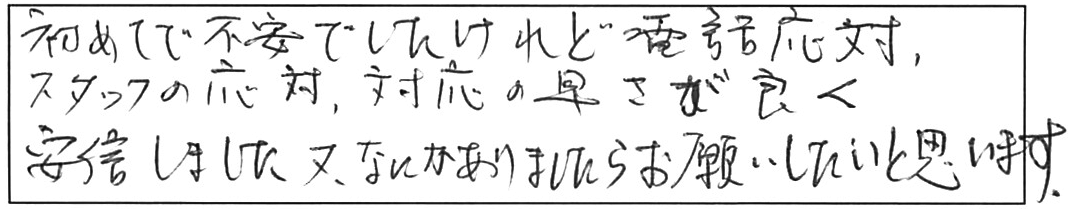 初めてで不安でしたけれど電話応対,
スタッフの応対,対応の早さが良く
安信しました又、なにかありましたらお願いしたいと思います.